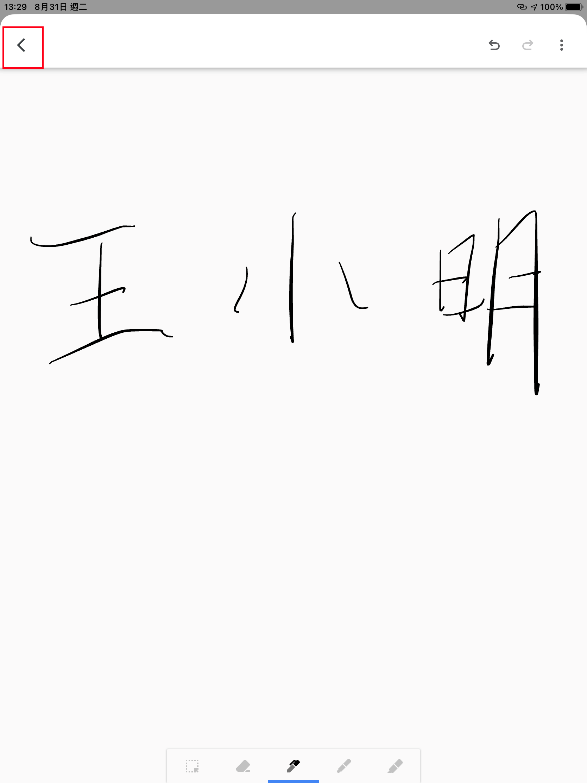 13:29 8月31日 週二 100%
王小明